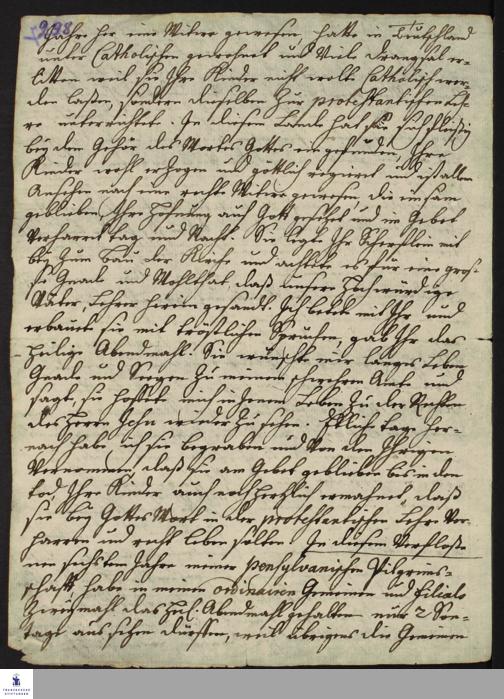 Jahre her eine Witwe gewesen, hatte in Teutschland
unter Catholischen gewohnet und viele Drangsal er-
litten weil sie Ihre Kinder nicht wolte Catholisch wer-
den laßen, sondern dieselben zur protestantischen Leh-
re unterrichtet. In diesem Lande hat sie sich fleißig
bey dem Gehör des Wortes Gottes eingefunden, Ihre
Kinder wohl erzogen und göttlich regieret und ist allem
Ansehen nach eine rechte Witwe gewesen, die einsam
geblieben, Ihre Hofnung auf Gott gesetzet und im Gebet
verharret Tag und Nacht. Sie legte Ihr Scherflein mit
bey zum Bau der Kirche und achtete es für eine gros-
se Gnade und Wohlthat daß unsere Hochwürdige
Väter Lehrer herein gesandt. Ich betete mit Ihr und
erbauete sie mit tröstlichen Sprüchen, gab Ihr das
Heilige Abendmahl. Sie wünschte mir langes Leben
Gnade und Segen zu meinem schweren Amte und
sagte, sie hoffete mich in jenem Leben zu der Rechten
des Herrn Jesu wieder zu sehen. Etliche Tage her-
nach habe ich sie begraben und von den Ihrigen
vernommen, daß sie am Gebet geblieben bis in den
Tod, Ihre Kinder auch noch herzlich ermahnet, daß
sie bey Gottes Wort in der protestantischen Lehre ver-
harren und recht leben solten. In diesem verfloße-
nen sechsten Jahre meiner pensylvanischen Pilgrim-
schaft, habe in meinen ordinairen Gemeinen und Filiale
zwoͤlfmahl das Heil. Abendmahl gehalten nur 2 Son-
tage aus seyn dürffen, weil übrigens die Gemeinen
FRANCKESCHE
STIFTUNGEN